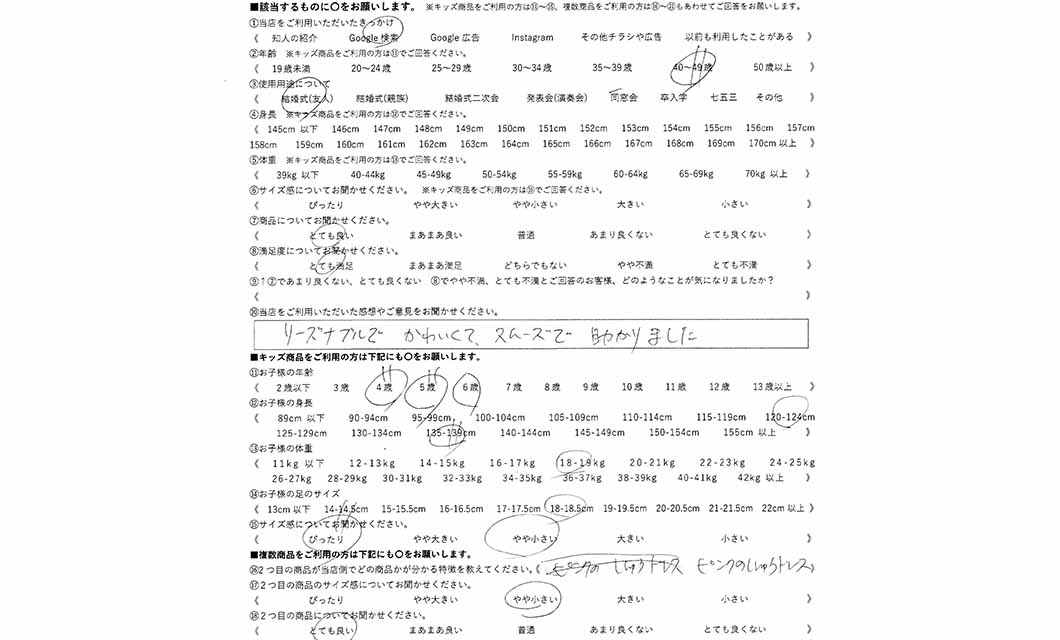 ■該当するものに〇をお願いします。 ※キッズ商品をご利用の方は⑪~⑮、複数商品をご利用の方は⑯~㉑もあわせてご回答をお願いします。
①当店をご利用いただいたきっかけ
《 知人の紹介 Google 検索 Google 広告 Instagram その他チラシや広告 以前も利用したことがある 》
②年齢 ※キッズ商品をご利用の方は⑪でご回答ください。
《 19歳未満 20〜24歳 25〜29歳 30〜34歳 35〜39歳 40〜49歳 50歳以上 》
③使用用途について
《 結婚式(友人) 結婚式(親族) 結婚式二次会 発表会(演奏会) 同窓会 卒入学 七五三 その他 》
④身長 ※キッズ商品をご利用の方は⑫でご回答ください。
《 145cm 以下 146cm 147cm 148cm 149cm 150cm 151cm 152cm 153cm 154cm 155cm 156cm 157cm
158cm 159cm 160cm 161cm 162cm 163cm 164cm 165cm 166cm 167cm 168cm 169cm 170cm 以上 》
⑤体重 ※キッズ商品をご利用の方は⑬でご回答ください。
《 39kg 以下 40-44kg 45-49kg 50-54kg 55-59kg 60-64kg 65-69kg 70kg 以上 》
⑥サイズ感についてお聞かせください。 ※キッズ商品をご利用の方は⑮でご回答ください。
《 ぴったり やや大きい やや小さい 大きい 小さい 》
⑦商品についてお聞かせください。
《 とても良い まあまあ良い 普通 あまり良くない とても良くない 》
⑧満足度についてお聞かせください。
《 とても満足 まあまあ満足 どちらでもない やや不満 とても不満 》
⑨↑⑦であまり良くない、とても良くない ⑧でやや不満、とても不満とご回答のお客様、どのようなことが気になりましたか？
《 》
⑩当店をご利用いただいた感想やご意見をお聞かせください。
リーズナブルで かわいくて、スムーズで 助かりました
■キッズ商品をご利用の方は下記にも〇をお願いします。
⑪お子様の年齢
《 2歳以下 3歳 4歳 5歳 6歳 7歳 8歳 9歳 10歳 11歳 12歳 13歳以上 》
⑫お子様の身長
《 89cm 以下 90-94cm 95-99cm 100-104cm 105-109cm 110-114cm 115-119cm 120-124cm
125-129cm 130-134cm 135-139cm 140-144cm 145-149cm 150-154cm 155cm 以上 》
⑬お子様の体重
《 11kg 以下 12-13kg 14-15kg 16-17kg 18-19kg 20-21kg 22-23kg 24-25kg
26-27kg 28-29kg 30-31kg 32-33kg 34-35kg 36-37kg 38-39kg 40-41kg 42kg 以上 》
⑭お子様の足のサイズ
《 13cm 以下 14-14.5cm 15-15.5cm 16-16.5cm 17-17.5cm 18-18.5cm 19-19.5cm 20-20.5cm 21-21.5cm 22cm 以上 》
⑮サイズ感についてお聞かせください。
《 ぴったり やや大きい やや小さい 大きい 小さい 》
■複数商品をご利用の方は下記にも〇をお願いします。
⑯2つ目の商品が当店側でどの商品かが分かる特徴を教えてください。《 ピンクのししゅうドレス ピンクのししゅうドレス 》
⑰2つ目の商品のサイズ感についてお聞かせください。
《 ぴったり やや大きい やや小さい 大きい 小さい 》
⑱2つ目の商品についてお聞かせください。
《 とても良い まあまあ良い 普通 あまり良くない とても良くない 》